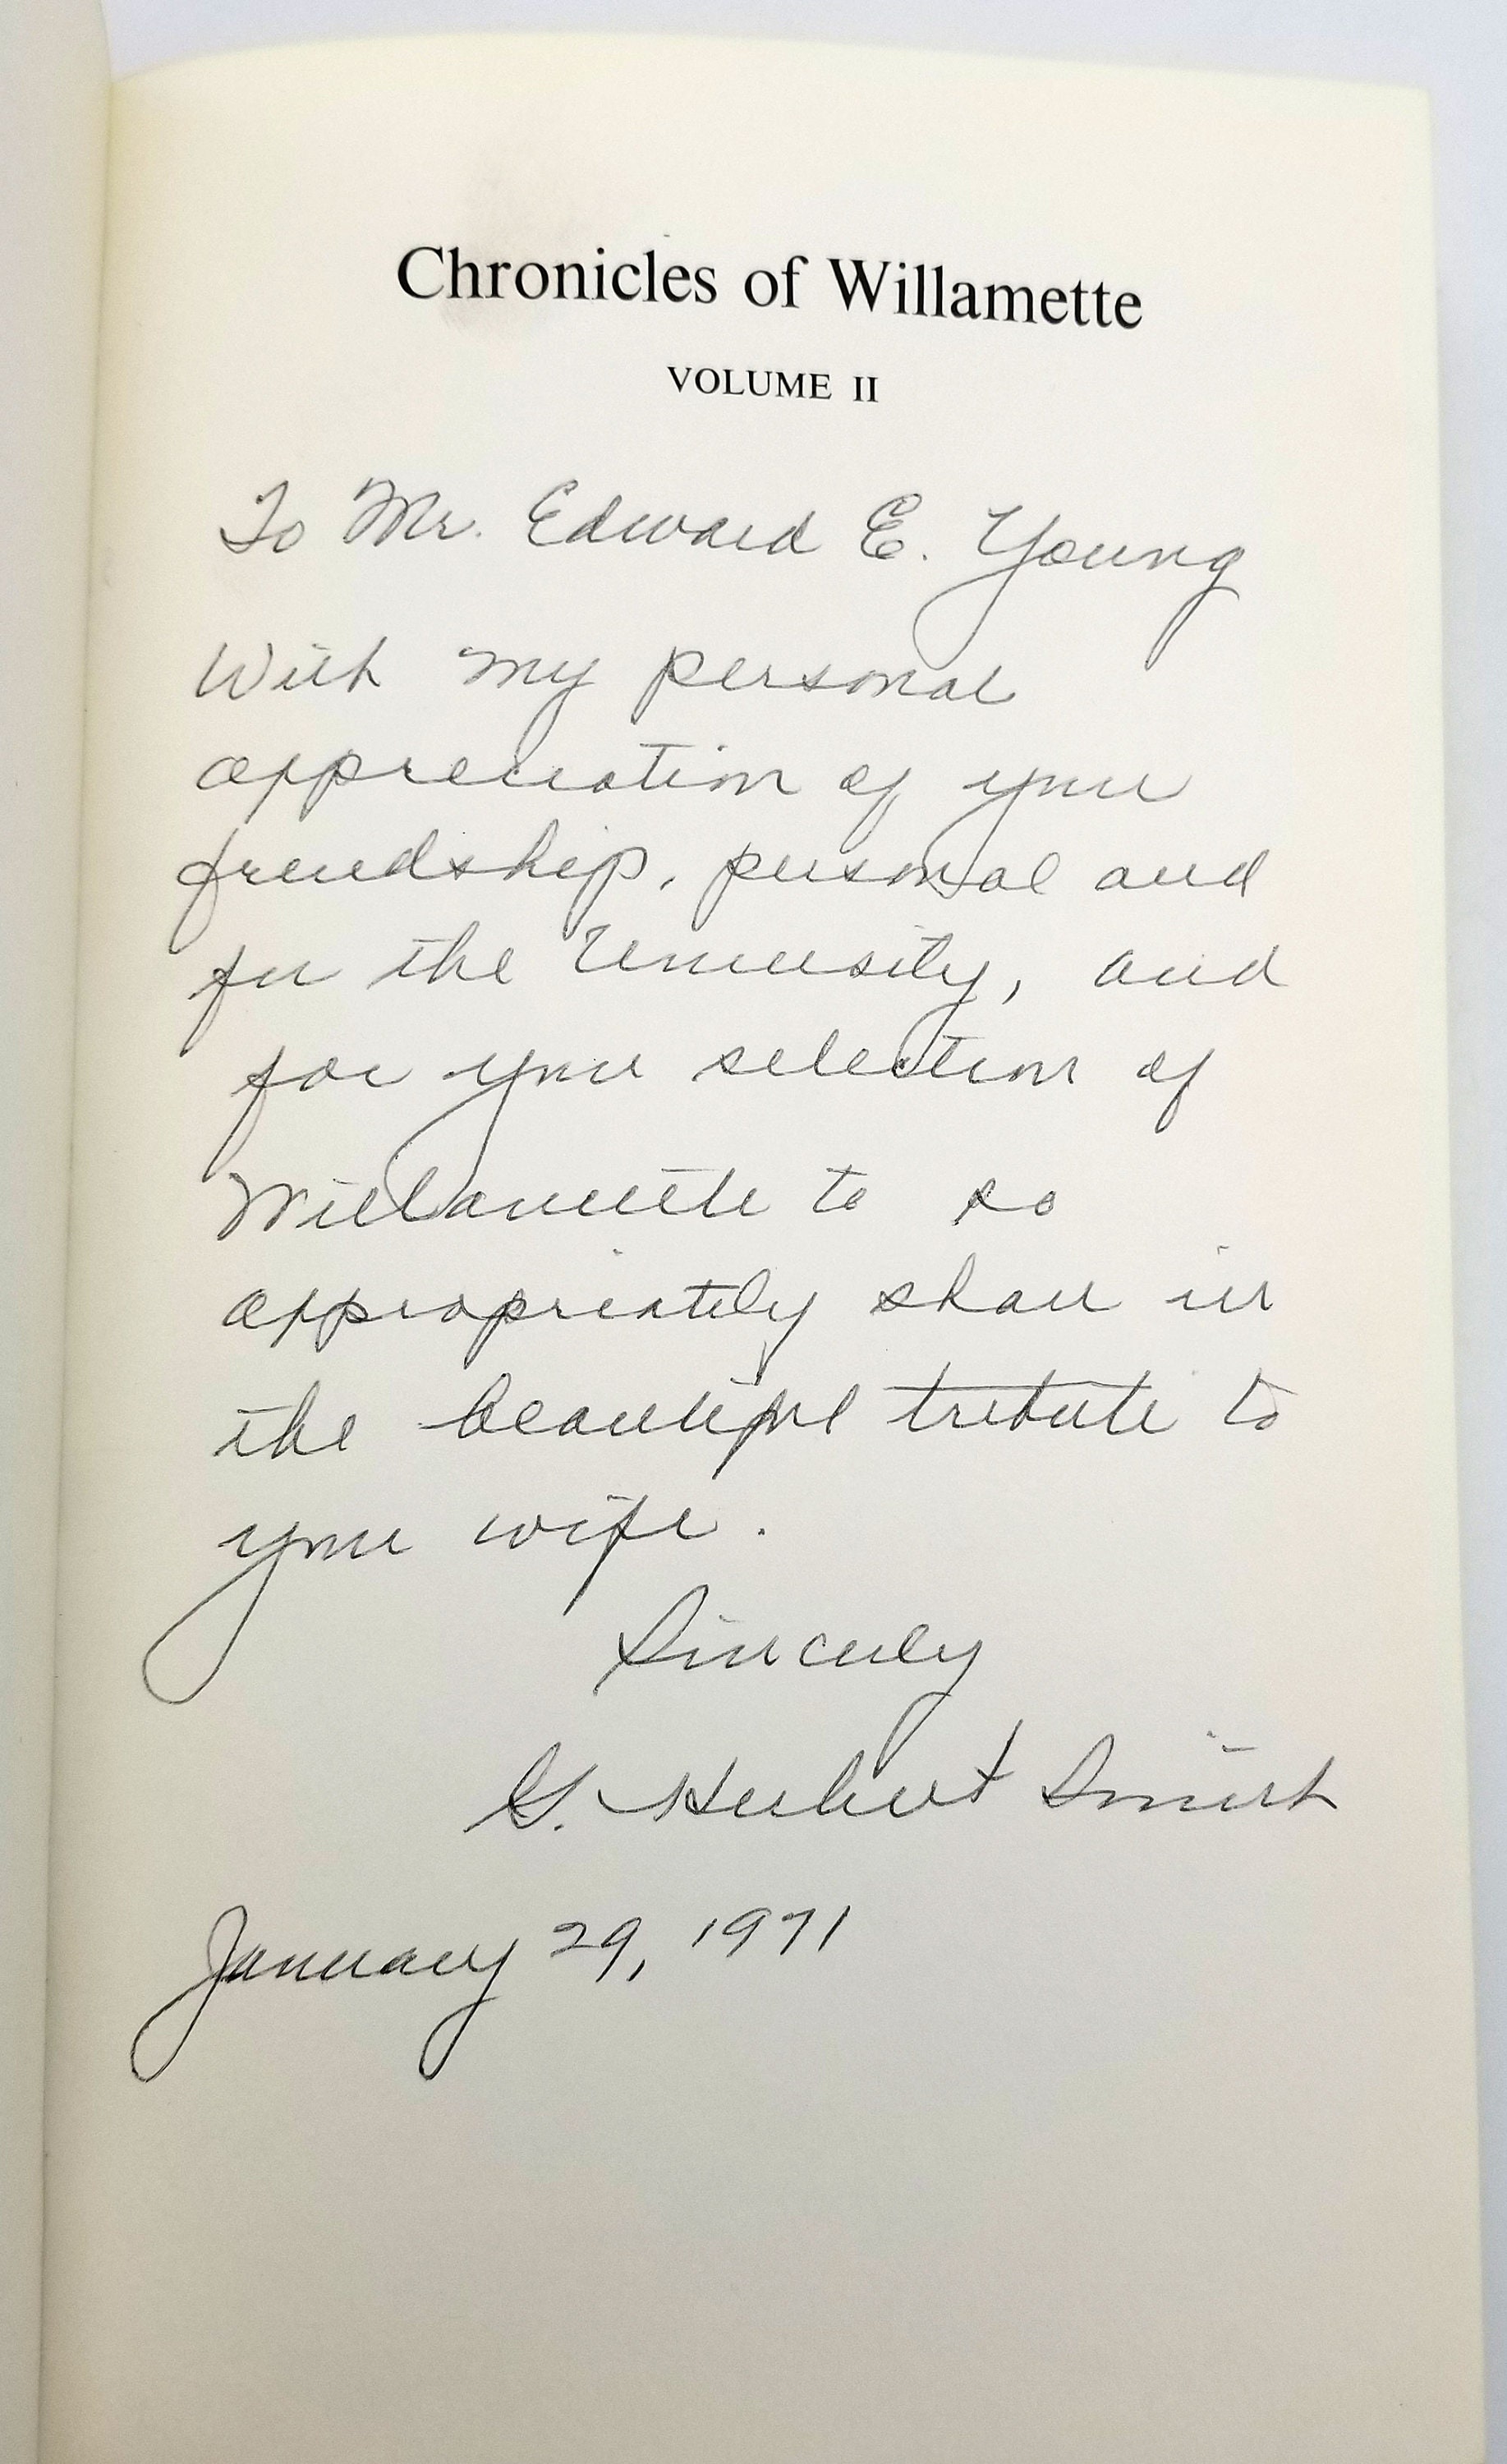 Chronicles of Willamette
VOLUME II
To Mr. Edward E. Young
With my personal
appreciation of your
friendship, personal and
for the University, and
for your selection of
Willamette to so
appropriately share in
the beautiful tribute to
your wife.
Sincerely
G. Herbert Smith
January 29, 1971